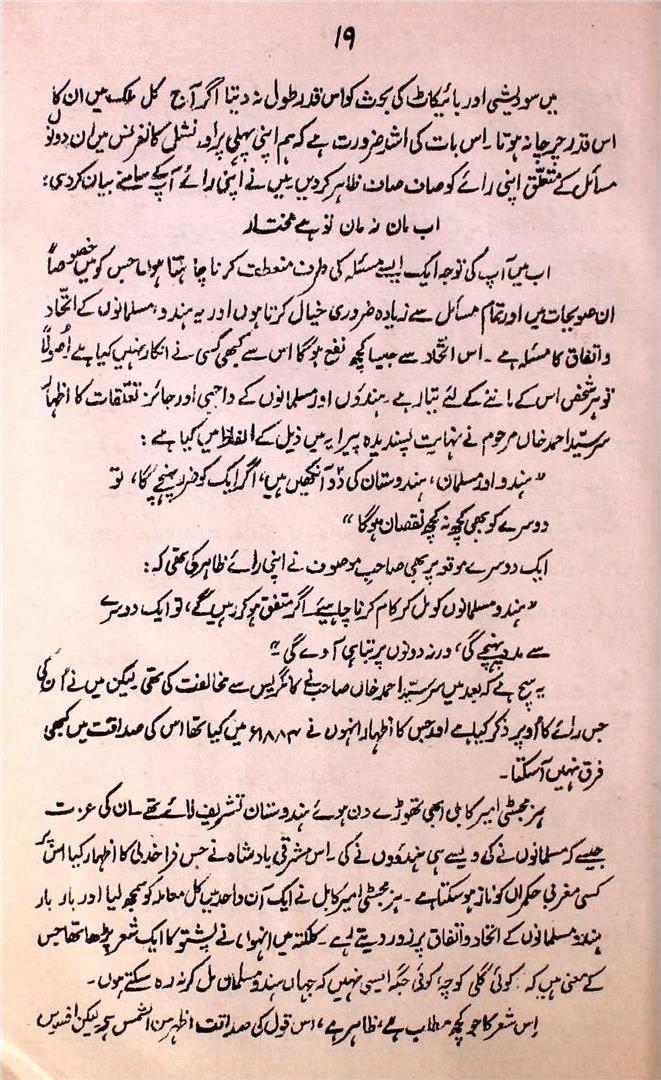 ۱۹
میں سودیشی اور بائیکاٹ کی بحث کو اس قدر طول نہ دیتا اگر آج کل ملک میں ان کا
اس قدر چرچا نہ ہوتا۔ اس بات کی اشد ضرورت ہے کہ ہم اپنی پہلی پراونشل کانفرنس میں ان دونوں
مسائل کے متعلق اپنی رائے کو صاف صاف ظاہر کردیں۔ میں نے اپنی رائے آپ کے سامنے بیان کردی:
اب مان نہ مان تو ہے مختار
اب میں آپ کی توجہ ایک ایسے مسئلہ کی طرف منعطف کرنا چاہتا ہوں جس کو میں خصوصاً
ان صوبجات میں اور تمام مسائل سے زیادہ ضروری خیال کرتا ہوں اور یہ ہندو مسلمانوں کے اتحاد
و اتفاق کا مسئلہ ہے۔ اس اتحاد سے جیسا کچھ نفع ہوگا اس سے کبھی کسی نے انکار نہیں کیا ہے اُصولاً
تو ہر شخص اس کے ماننے کے لئے تیار ہے۔ ہندوؤں اور مسلمانوں کے واجبی اور جائز تعلقات کا اظہار
سر سیّد احمد خاں مرحوم نے نہایت پسندیدہ پیرایہ میں ذیل کے الفاظ میں کیا ہے:
”ہندو اور مسلمان، ہندوستان کی دو آنکھیں ہیں، اگر ایک کو ضرر پہنچے گا، تو
دوسرے کو بھی کچھ نہ کچھ نقصان ہوگا“
ایک دوسرے موقع پر بھی صاحب موصوف نے اپنی رائے ظاہر کی تھی کہ:
”ہندو مسلمانوں کو مل کر کام کرنا چاہیے۔ اگر متفق ہو کر رہیں گے، تو ایک دوسرے
سے مدد پہنچے گی، ورنہ دونوں پر تباہی آوے گی۔“
یہ سچ ہے کہ بعد میں سر سیّد احمد خاں صاحب نے کانگریس سے مخالفت کی تھی لیکن میں نے اُن کی
جس رائے کا اُوپر ذکر کیا ہے اور جس کا اظہار انہوں نے ۱۸۸۴ء میں کیا تھا اس کی صداقت میں کبھی
فرق نہیں آسکتا۔
ہز مجسٹی امیر کابل ابھی تھوڑے دن ہوئے ہندوستان تشریف لائے تھے۔ ان کی عزت
جیسے کہ مسلمانوں نے کی ویسے ہی ہندوؤں نے کی۔ اس مشرقی بادشاہ نے جس فراخدلی کا اظہار کیا اس پر
کسی مغربی حکمراں کو ناز ہوسکتا ہے۔ ہز مجسٹی امیر کابل نے ایک آن واحد میں کل معاملہ کو سمجھ لیا اور بار بار
ہندو مسلمانوں کے اتحاد و اتفاق پر زور دیتے رہے۔ کلکتہ میں انہوں نے پشتو کا ایک شعر پڑھا تھا جس
کے معنی ہیں کہ کوئی گلی کوچہ کوئی جگہ ایسی نہیں کہ جہاں ہندو مسلمان مل کر نہ رہ سکتے ہوں۔
اِس شعر کا جو کچھ مطلب ہے، ظاہر ہے، اس قول کی صداقت اظہر من الشمس ہے لیکن افسوس